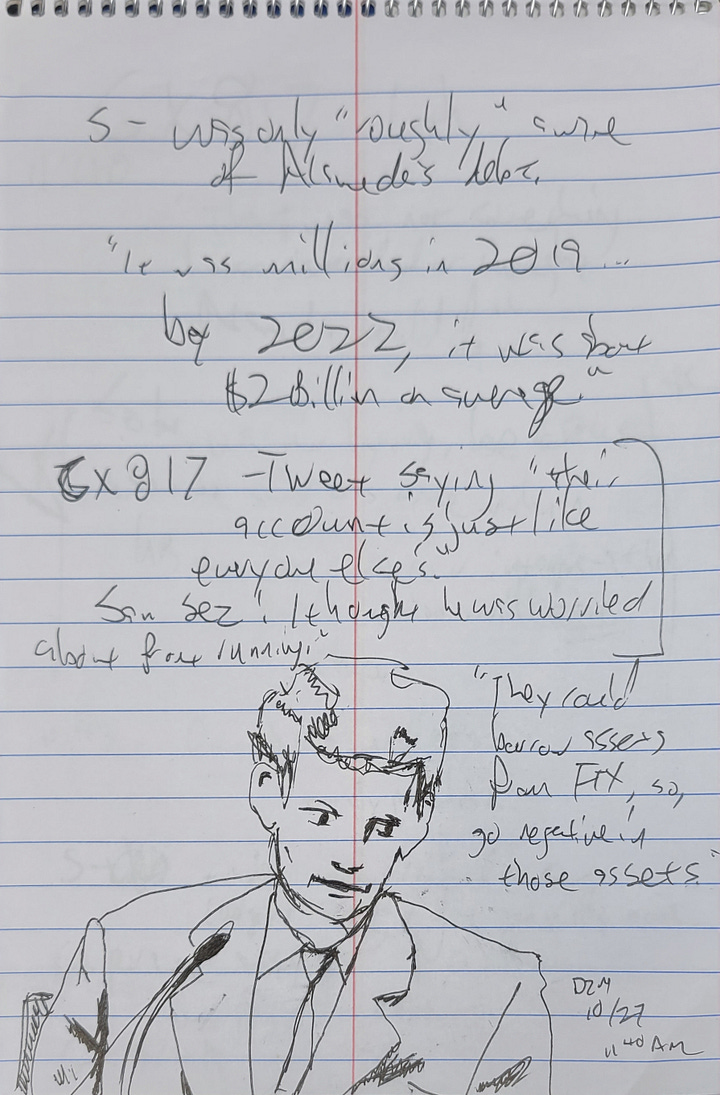 S - was only "roughly" aware
of Alameda's debt.
"It was millions in 2019 ...
by 2022, it was about
$2 Billin on average."
Ex 917 - Tweet saying "their
account is just like
everyone else's."
Sam sez: I thought he was worried
about front running."
"They could
borrow assets
from FTX, so,
go negative in
those assets"
DZM
10/27
11:40 AM